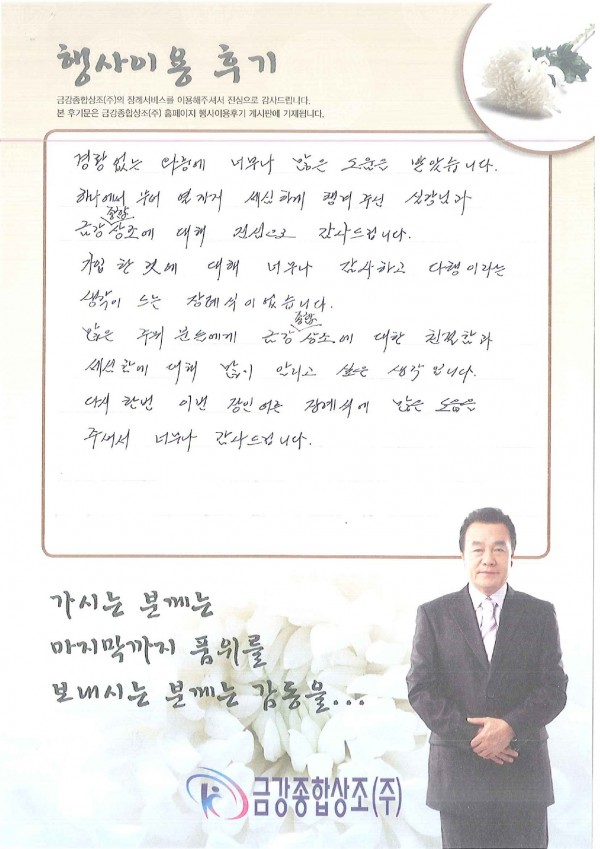 행사이용 후기
금강종합상조(주)의 장례서비스를 이용해주셔서 진심으로 감사드립니다.
본 후기문은 금강종합상조(주) 홈페이지 행사이용후기 게시판에 기재됩니다.
경황 없는 와중에 너무나 많은 도움을 받았습니다.
하나에서 부터 열까지 세심하게 챙겨 주신 실장님과
금강종합상조에 대해 진심으로 감사드립니다.
가입 한 것에 대해 너무나 감사하고 다행이라는
생각이 드는 장례식이었습니다.
많은 주위 분들에게 금강종합상조에 대한 친절함과
세심함에 대해 많이 알리고 싶은 생각입니다.
다시 한번 이번 장인어른 장례식에 많은 도움을
주셔서 너무나 감사드립니다.
가시는 분께는
마지막까지 품위를
보내시는 분께는 감동을...
금강종합상조(주)